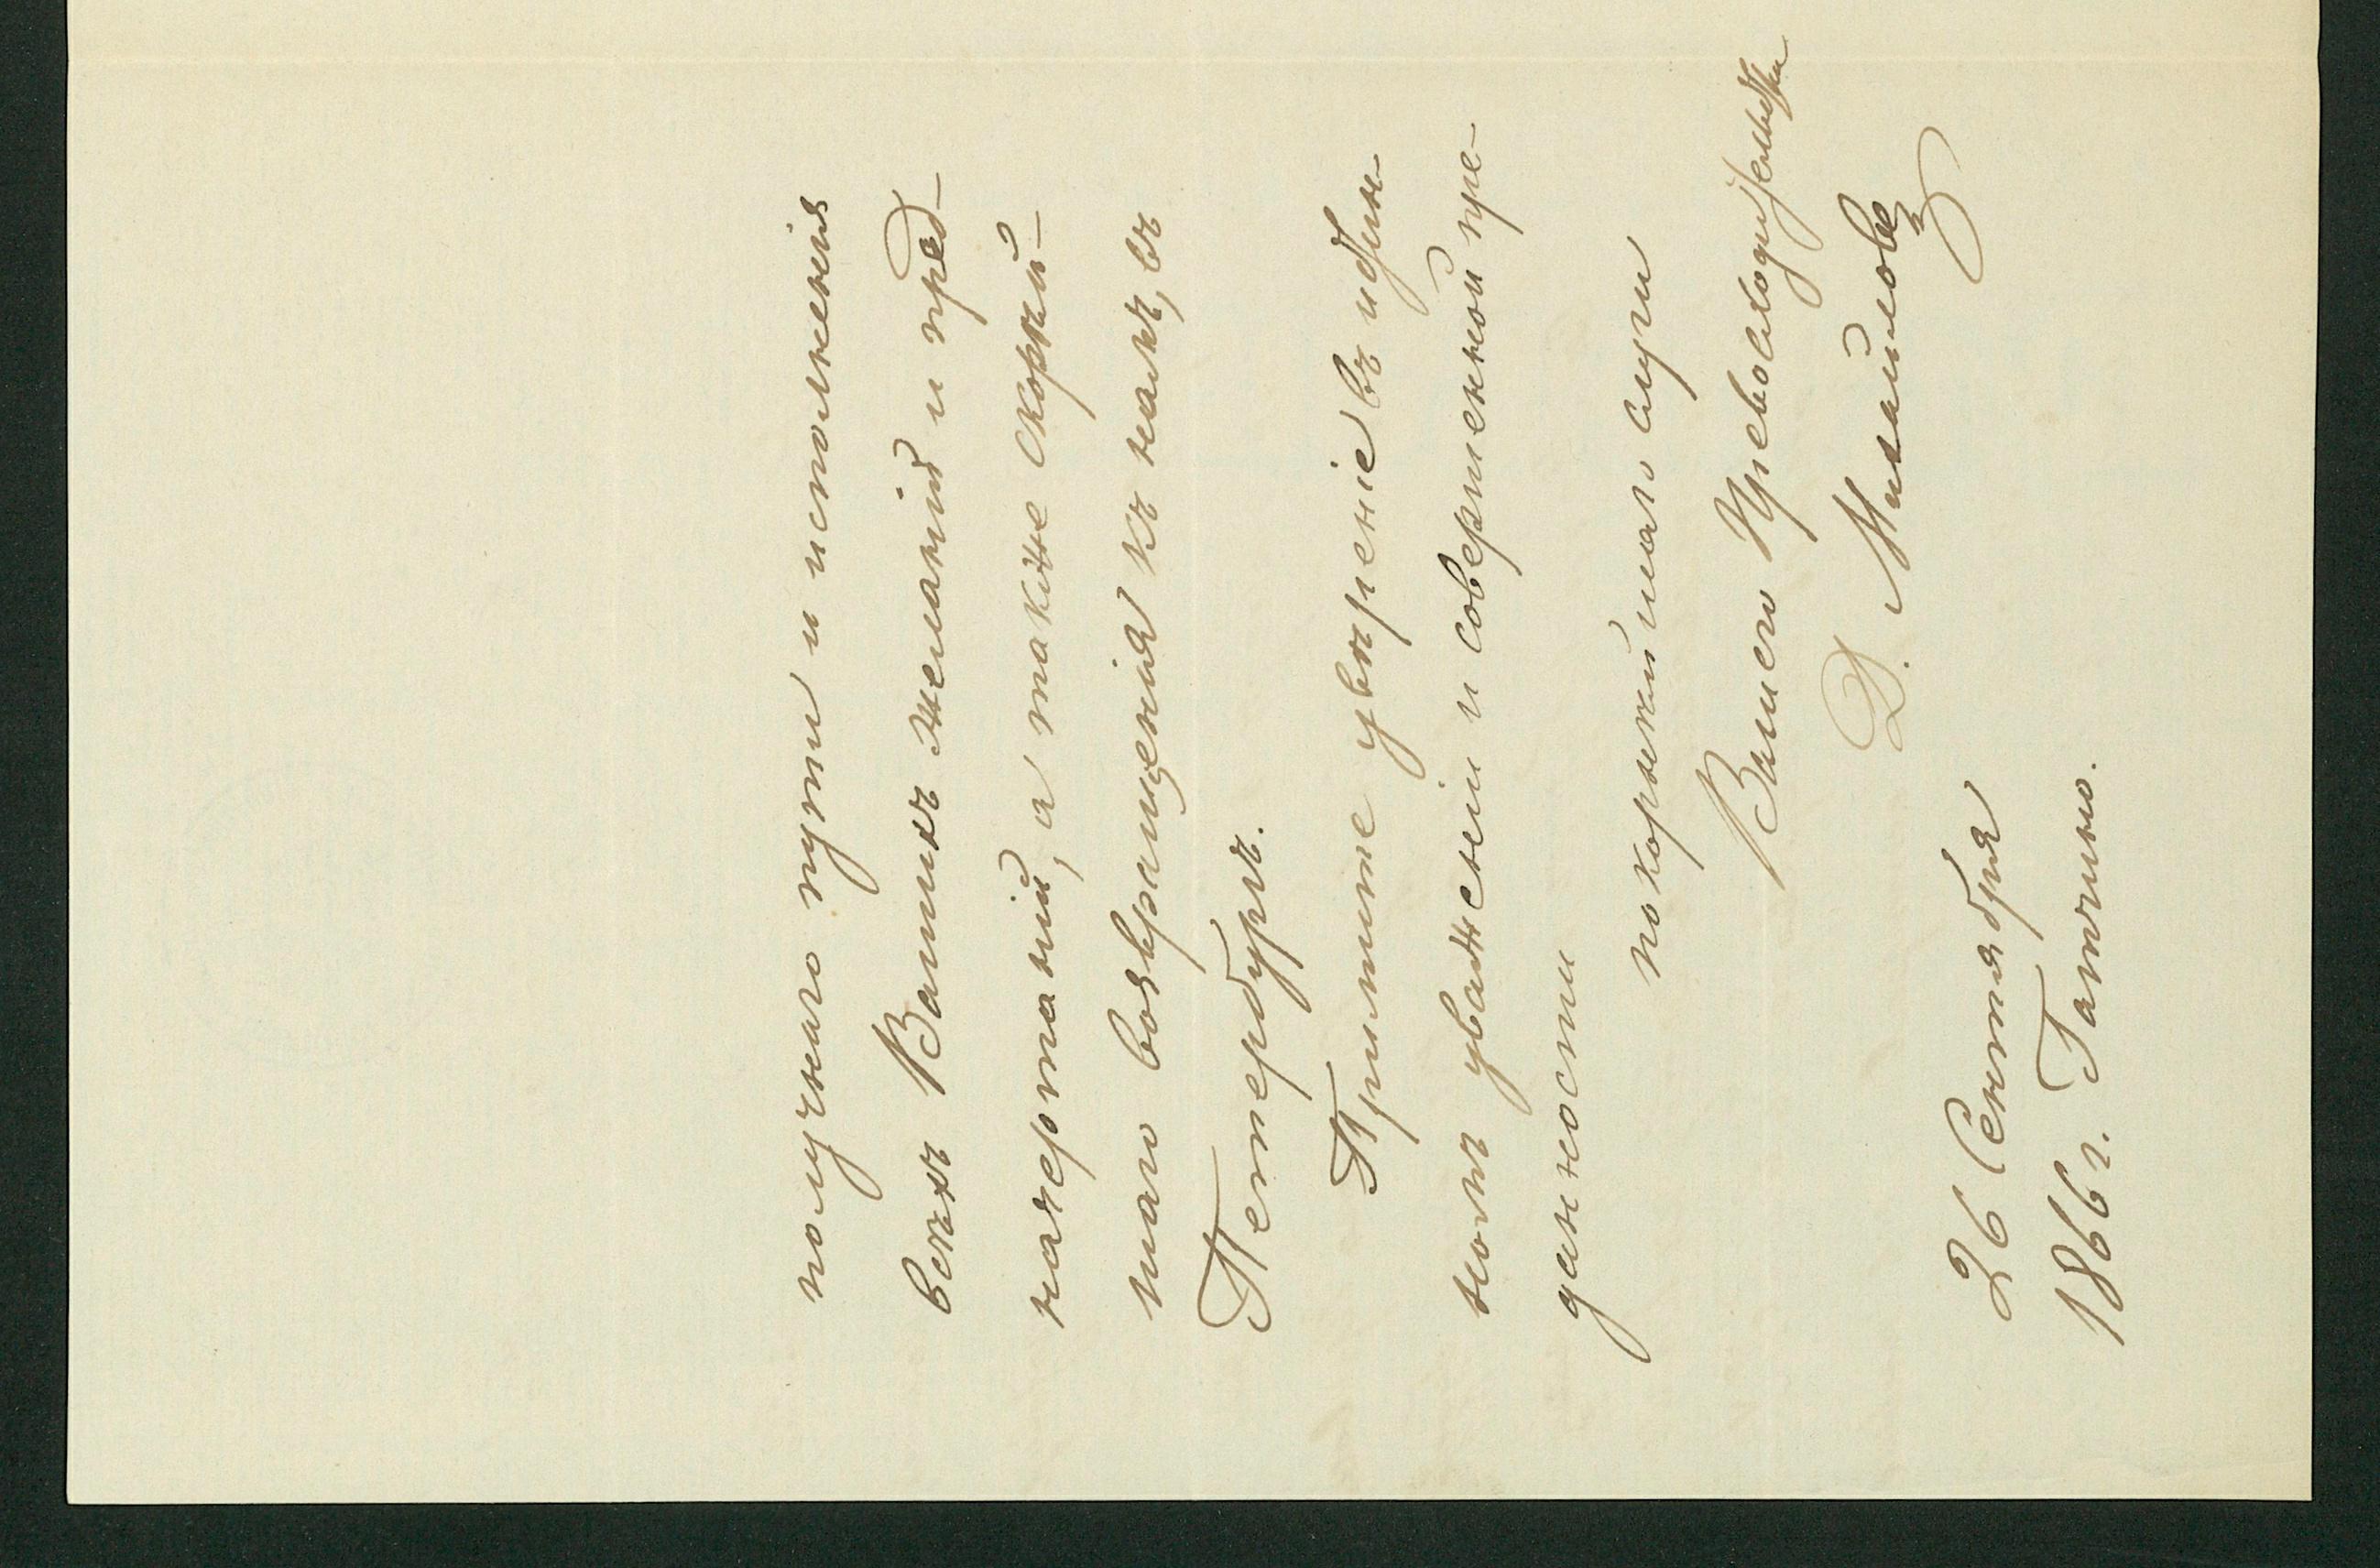 получнаго пути и исполненія
всѣхъ Вашихъ желаній и пред-
начертаній, а также скорѣй-
шаго возвращенія къ намъ, въ
Петербургъ.
Примите увѣреніе въ истин-
номъ уваженіи и совершенной пре-
данности
покорнѣйшаго слуги
Вашего Превосходительства
Д. Михайловъ
26 Сентября
1866 г. Гатчино.